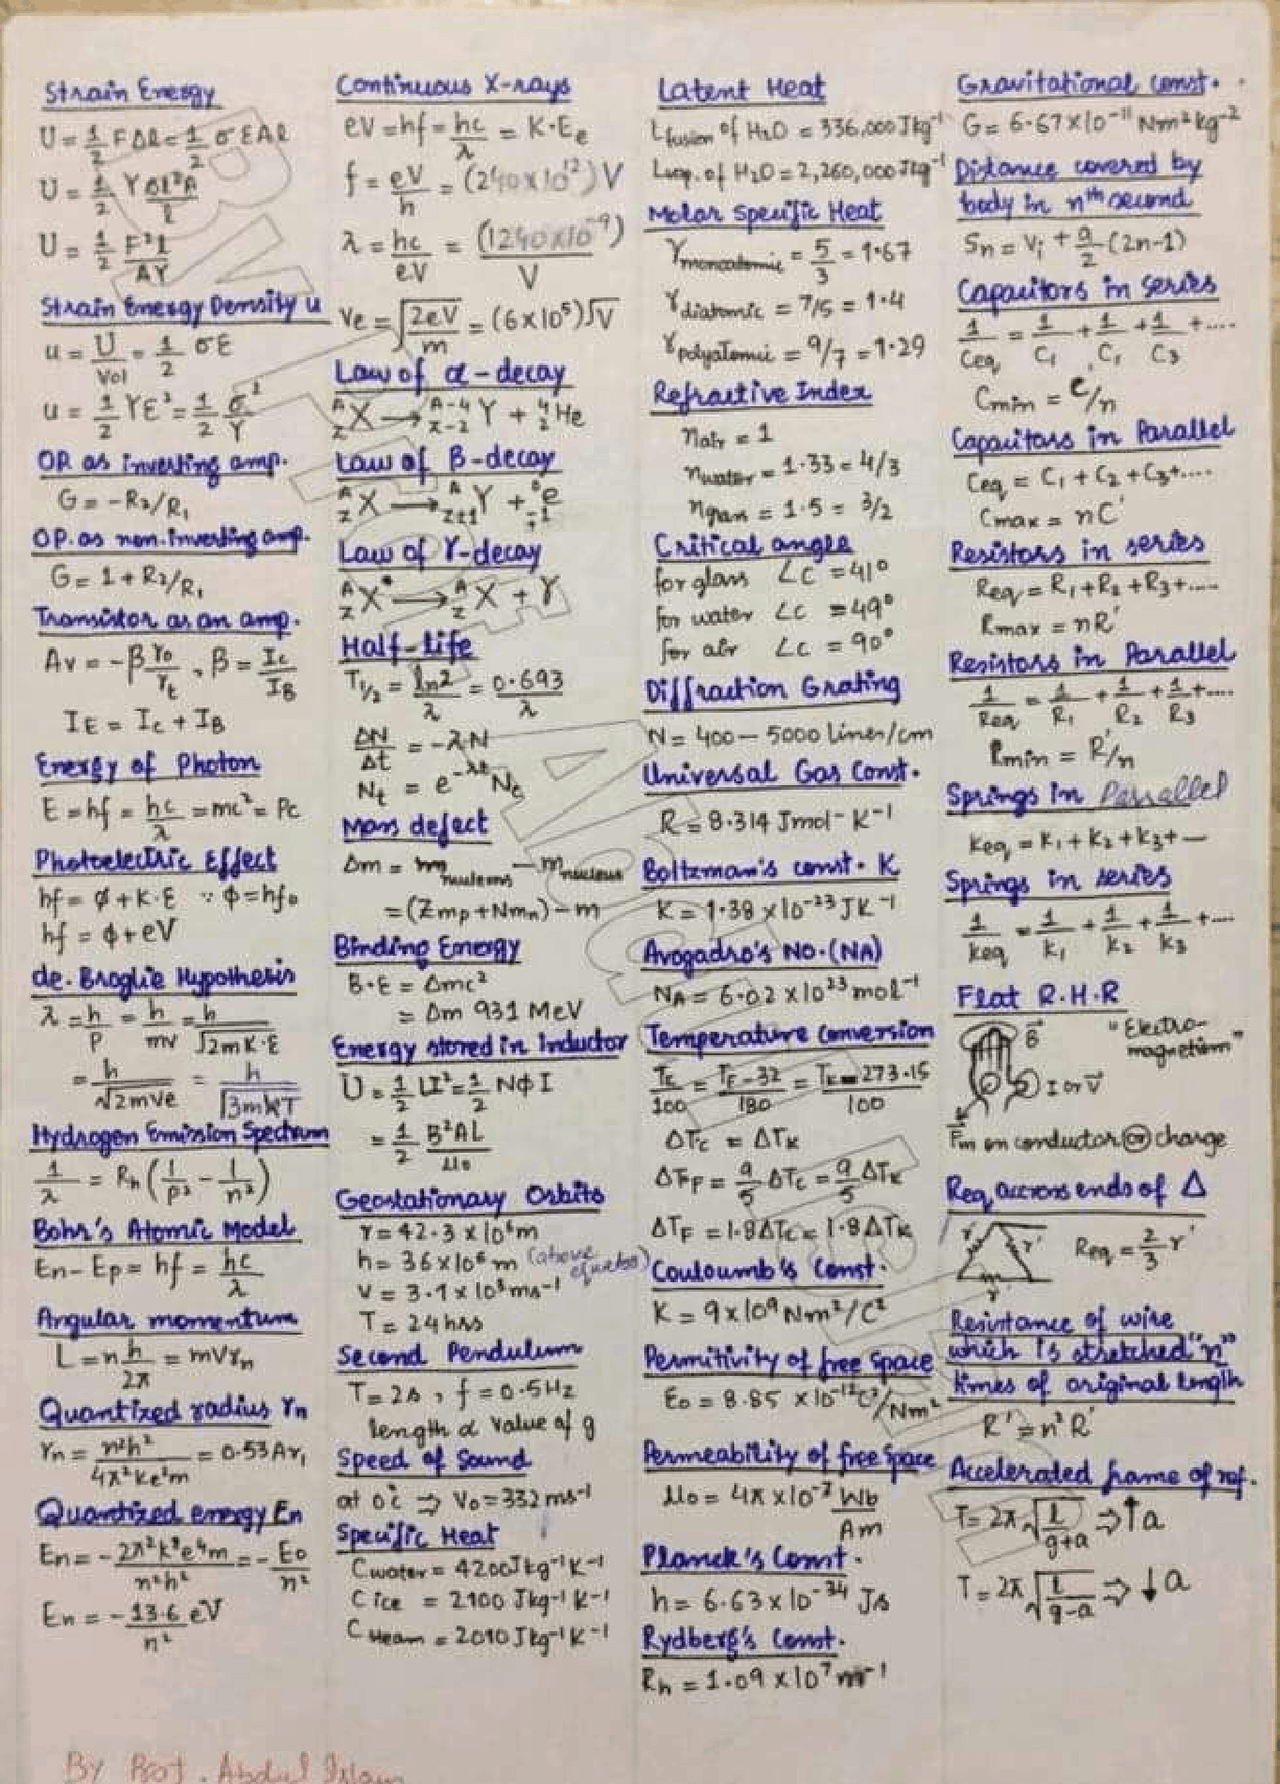 Strain Energy
U = 1/2 FΔl = 1/2 σEAl
U = 1/2 YΔl²A/l
U = 1/2 F²l/AY
Strain Energy Density u
u = U/Vol = 1/2 σE
u = 1/2 YE² = 1/2 σ²/Y
OP. as inverting amp.
G = -R₂/R₁
OP. as non.inverting amp.
G = 1 + R₂/R₁
Transistor as an amp.
Av = -β r₀/rₜ , β = Ic/IB
IE = Ic + IB
Energy of Photon
E = hf = hc/λ = mc² = Pc
Photoelectric Effect
hf = ϕ + K.E ∵ ϕ = hf₀
hf = ϕ + eV
de. Broglie Hypothesis
λ = h/P = h/mv = h/√2mK.E
= h/√2mVe = h/√3mkT
Hydrogen Emission Spectrum
1/λ = Rh (1/p² - 1/n²)
Bohr's Atomic Model
En - Ep = hf = hc/λ
Angular momentum
L = n h/2π = mVrn
Quantized radius rn
rn = n²h²/4π²ke²m = 0.53A r₁
Quantized energy En
En = -2π²k²e⁴m/n²h² = -E₀/n²
En = -13.6 eV/n²
Continuous X-rays
eV = hf = hc/λ = K.Ee
f = eV/h = (240×10¹²) V
λ = hc/eV = (1240×10⁻⁹)/V
Ve = √2eV/m = (6×10⁵)√V
Law of α-decay
ᴬzX → ᴬ⁻⁴x-2Y + ⁴₂He
Law of β-decay
ᴬzX → ᴬz±1Y + ⁰∓1e
Law of γ-decay
ᴬzX* → ᴬzX + γ
Half-life
T1/2 = ln2/λ = 0.693/λ
ΔN/Δt = -λN
Nt = e^-λt N₀
Mass defect
Δm = m nucleons - m nucleus
= (Zmp + Nmn) - m
Binding Energy
B.E = Δmc²
= Δm 931 MeV
Energy stored in Inductor
U = 1/2 LI² = 1/2 NϕI
= 1/2 B²AL/μ₀
Geostationary Orbits
r = 42.3 × 10⁶ m
h = 36×10⁶ m (above equator)
V = 3.1×10³ ms⁻¹
T = 24 hrs
Second Pendulum
T = 2s , f = 0.5Hz
length α value of g
Speed of Sound
at 0°c ⇒ V₀ = 332 ms⁻¹
Specific Heat
Cwater = 4200Jkg⁻¹K⁻¹
C ice = 2100 Jkg⁻¹K⁻¹
C steam = 2010 Jkg⁻¹K⁻¹
Latent Heat
Lfusion of H₂O = 336,000 Jkg⁻¹
Lvap. of H₂O = 2,260,000 Jkg⁻¹
Molar Specific Heat
γmonoatomic = 5/3 = 1.67
γdiatomic = 7/5 = 1.4
γpolyatomic = 9/7 = 1.29
Refractive Index
nair = 1
nwater = 1.33 = 4/3
nglass = 1.5 = 3/2
Critical angle
for glass ∠C = 41°
for water ∠C = 49°
for air ∠C = 90°
Diffraction Grating
N = 400 — 5000 lines/cm
Universal Gas Const.
R = 8.314 Jmol⁻ K⁻¹
Boltzman's const. K
K = 1.38 × 10⁻²³ JK⁻¹
Avogadro's NO.(NA)
NA = 6.02 × 10²³ mol⁻¹
Temperature conversion
Tc/100 = TF-32/180 = TK-273.15/100
ΔTc = ΔTK
ΔTF = 9/5 ΔTc = 9/5 ΔTK
ΔTF = 1.8ΔTc = 1.8ΔTK
Couloumb's Const.
K = 9×10⁹ Nm²/C²
Permitivity of free Space
E₀ = 8.85 ×10⁻¹²C²/Nm²
Permeability of free Space
μ₀ = 4π×10⁻⁷ Wb/Am
Planck's Const.
h = 6.63×10⁻³⁴ Js
Rydberg's Const.
Rh = 1.09 ×10⁷ m⁻¹
Gravitational const.
G = 6.67×10⁻¹¹ Nm²kg⁻²
Distance covered by
body in nth second
Sn = Vi + a/2 (2n-1)
Capacitors in series
1/Ceq = 1/C₁ + 1/C₁ + 1/C₃ + ....
Cmin = C/n
Capacitors in Parallel
Ceq = C₁ + C₂ + C₃+....
Cmax = nC'
Resistors in series
Req = R₁+R₂+R₃+....
Rmax = nR'
Resistors in Parallel
1/Req = 1/R₁ + 1/R₂ + 1/R₃+....
Rmin = R'/n
Springs in Parrallel
Keq = K₁ + K₂ + K₃+—
Springs in series
1/keq = 1/k₁ + 1/k₂ + 1/k₃ +....
Flat R.H.R
B⃗ "Electro-
magnetism"
I or V⃗
Fm on conductor or charge
Req across ends of Δ
r' r' Req = 2/3 r'
r'
Resistance of wire
which is stretched "n"
times of original length
R' = n² R'
Accelerated frame of ref.
T = 2π √l/g+a ⇒ ↑a
T = 2π √l/g-a ⇒ ↓a
By Prof. Abdul Islam